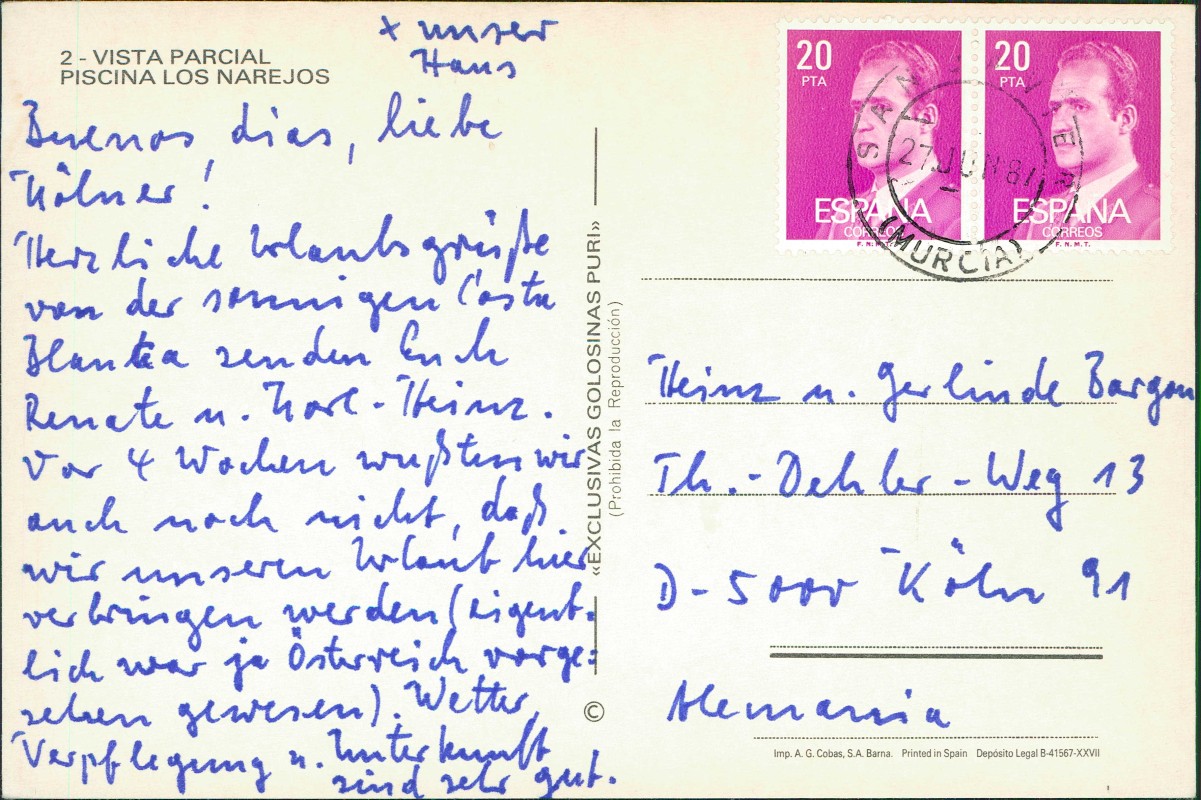 × unser
Haus
2 - VISTA PARCIAL
PISCINA LOS NAREJOS
Buenos dias, liebe
Kölner!
Herzliche Urlaubsgrüße
von der sonnigen Costa
Blanca senden Euch
Renate u. Karl-Heinz.
Vor 4 Wochen wußten wir
auch noch nicht, daß
wir unseren Urlaub hier
verbringen werden (eigent-
lich war ja Österreich vorge-
sehen gewesen). Wetter,
Verpflegung u. Unterkunft
sind sehr gut.
«EXCLUSIVAS GOLOSINAS PURI»
(Prohibida la Reproducción)
©
20
PTA
ESPAÑA
CORREOS
F. N. M. T.
20
PTA
ESPAÑA
CORREOS
F. N. M. T.
27 JUN 81
(MURCIA)
Heinz u. Gerlinde Bargon
Th.-Dehler-Weg 13
D-5000 Köln 91
Alemania
Imp. A. G. Cobas, S.A. Barna. Printed in Spain Depósito Legal B-41567-XXVII